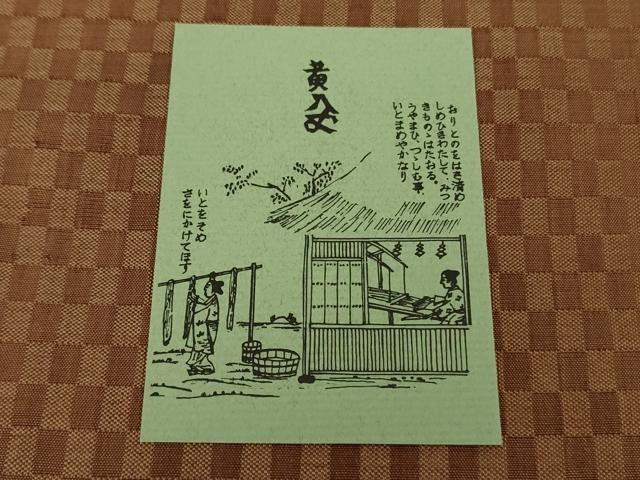 黄八丈
おりとのをはき清め
しめひきわたして、みつ
きものゝはたおる。
うやまひ、つゝしむ事、
いとまめやかなり
いとをそめ
さをにかけてほす